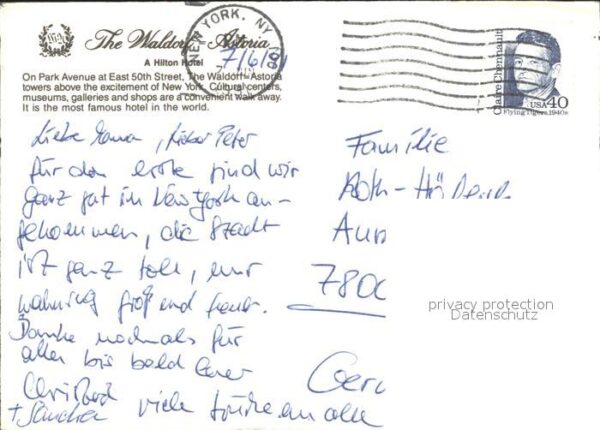 The Waldorf Astoria
A Hilton Hotel
On Park Avenue at East 50th Street, The Waldorf=Astoria
towers above the excitement of New York. Cultural centers,
museums, galleries and shops are a convenient walk away.
It is the most famous hotel in the world.
NEW YORK, NY
7/6/91
Claire Chennault
USA 40
Flying Tigers, 1940s
Liebe Mama, Lieber Peter
für das erste sind wir
ganz gut in New York an-
gekommen, die Stadt
ist ganz toll, nur
wahnsinnig groß und heiß.
Danke nochmals für
alles bis bald Euer
Christian
viele Grüße an alle
Familie
Roth-
780
privacy protection
Datenschutz